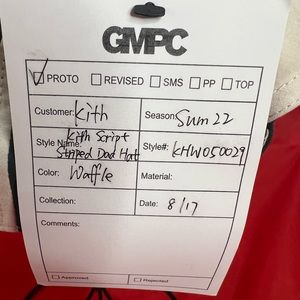 GMPC
☑ PROTO ☐ REVISED ☐ SMS ☐ PP ☐ TOP
Customer: Kith Season: Sum 22
Style Name: Kith Script Striped Dad Hat Style#: KHW050029
Color: Waffle Material:
Collection: Date: 8/17
Comments:
☐ Approved ☐ Rejected